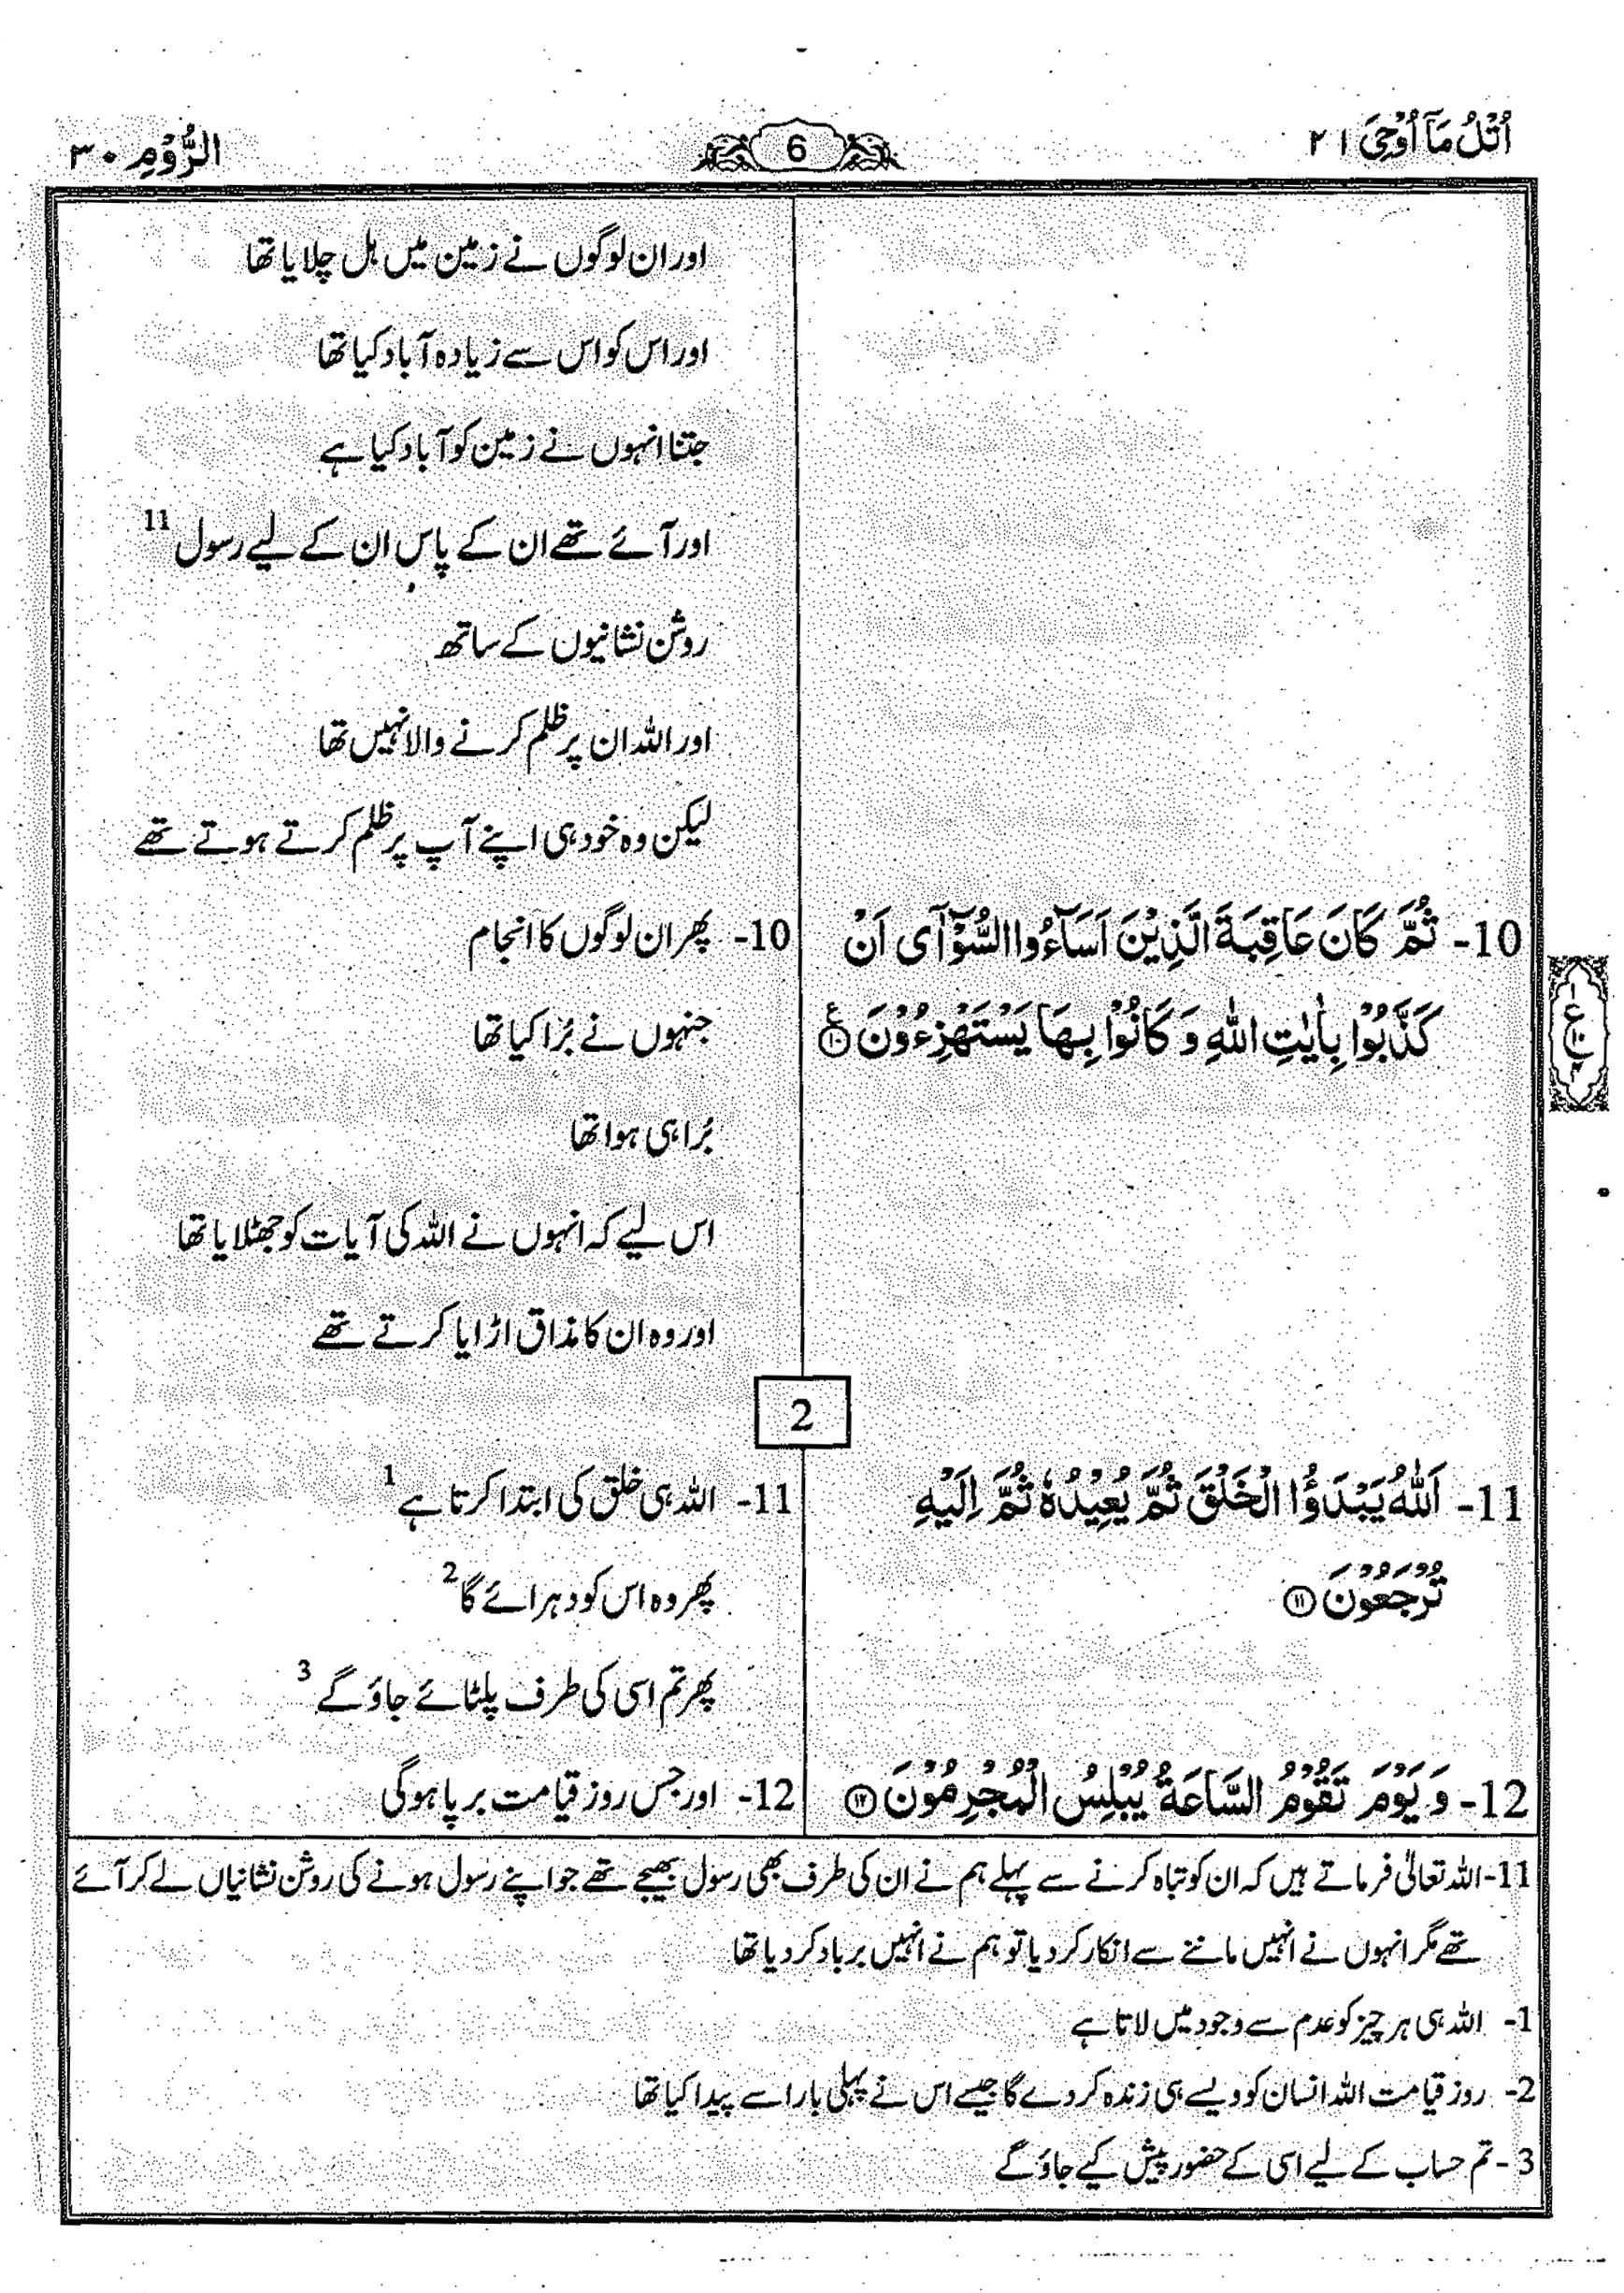 اُتْلُ مَآ اُوْحِیَ ۲۱
6
الرُّوْمِ ۳۰
اور ان لوگوں نے زمین میں ہل چلایا تھا
اور اس کو اس سے زیادہ آباد کیا تھا
جتنا انہوں نے زمین کو آباد کیا ہے
اور آئے تھے ان کے پاس ان کے لیے رسول 11
روشن نشانیوں کے ساتھ
اور اللہ ان پر ظلم کرنے والا نہیں تھا
لیکن وہ خود ہی اپنے آپ پر ظلم کرتے ہوتے تھے
10- ثُمَّ كَانَ عَاقِبَةَ الَّذِيْنَ اَسَآءُوا السُّوْٓاٰى اَنْ
كَذَّبُوْا بِاٰيٰتِ اللّٰهِ وَ كَانُوْا بِهَا يَسْتَهْزِءُوْنَ ۧ ۝۱۰
10- پھر ان لوگوں کا انجام
جنہوں نے بُرا کیا تھا
بُرا ہی ہوا تھا
اس لیے کہ انہوں نے اللہ کی آیات کو جھٹلایا تھا
اور وہ ان کا مذاق اڑایا کرتے تھے
2
11- اَللّٰهُ يَبْدَؤُا الْخَلْقَ ثُمَّ يُعِيْدُهٗ ثُمَّ اِلَيْهِ
تُرْجَعُوْنَ ۝۱۱
11- اللہ ہی خلق کی ابتدا کرتا ہے 1
پھر وہ اس کو دہرائے گا 2
پھر تم اسی کی طرف پلٹائے جاؤ گے 3
12- وَ يَوْمَ تَقُوْمُ السَّاعَةُ يُبْلِسُ الْمُجْرِمُوْنَ ۝۱۲
12- اور جس روز قیامت برپا ہوگی
11- اللہ تعالیٰ فرماتے ہیں کہ ان کو تباہ کرنے سے پہلے ہم نے ان کی طرف بھی رسول بھیجے تھے جو اپنے رسول ہونے کی روشن نشانیاں لے کر آئے
تھے مگر انہوں نے انہیں ماننے سے انکار کر دیا تو ہم نے انہیں برباد کر دیا تھا
1- اللہ ہی ہر چیز کو عدم سے وجود میں لاتا ہے
2- روز قیامت اللہ انسان کو ویسے ہی زندہ کر دے گا جیسے اس نے پہلی بار اسے پیدا کیا تھا
3- تم حساب کے لیے اسی کے حضور پیش کیے جاؤ گے